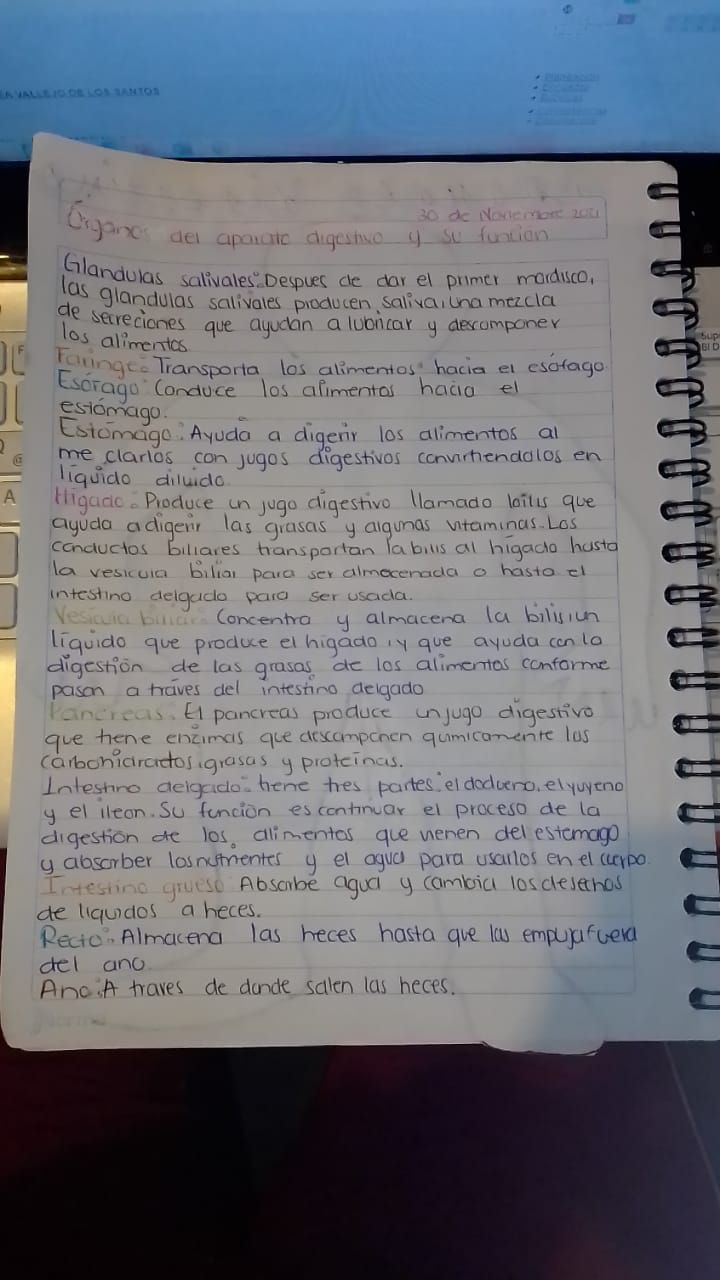 EA VALLEJO DE LOS SANTOS
30 de Noviembre 2021
Órganos del aparato digestivo y su función
Glandulas salivales: Despues de dar el primer mordisco,
las glandulas salivales producen saliva, una mezcla
de secreciones que ayudan a lubricar y descomponer
los alimentos.
Faringe: Transporta los alimentos hacia el esófago
Esófago: Conduce los alimentos hacia el
estómago.
Estómago: Ayuda a digerir los alimentos al
me clarlos con jugos digestivos convirtiendolos en
líquido diluido.
Hígado: Produce un jugo digestivo llamado bilis que
ayuda a digerir las grasas y algunas vitaminas. Los
conductos biliares transportan la bilis al hígado hasta
la vesicula biliar para ser almacenada o hasta el
intestino delgado para ser usada.
Vesicula biliar: Concentra y almacena la bilis, un
líquido que produce el hígado, y que ayuda con la
digestión de las grasas de los alimentos conforme
pasan a través del intestino delgado
Pancreas: El pancreas produce un jugo digestivo
que tiene enzimas que descomponen quimicamente los
grasas y proteinas.
Intestino delgado: tiene tres partes: el dodueno, el yuyeno
y el ileon. Su función es continuar el proceso de la
digestión de los alimentos que vienen del estomago
y absorber los nutrientes y el agua para usarlos en el cuerpo.
Intestino grueso: Absorbe agua y cambia los desechos
de liquidos a heces.
Recto: Almacena las heces hasta que las empuja fuera
del ano.
Ano: A traves de donde salen las heces.